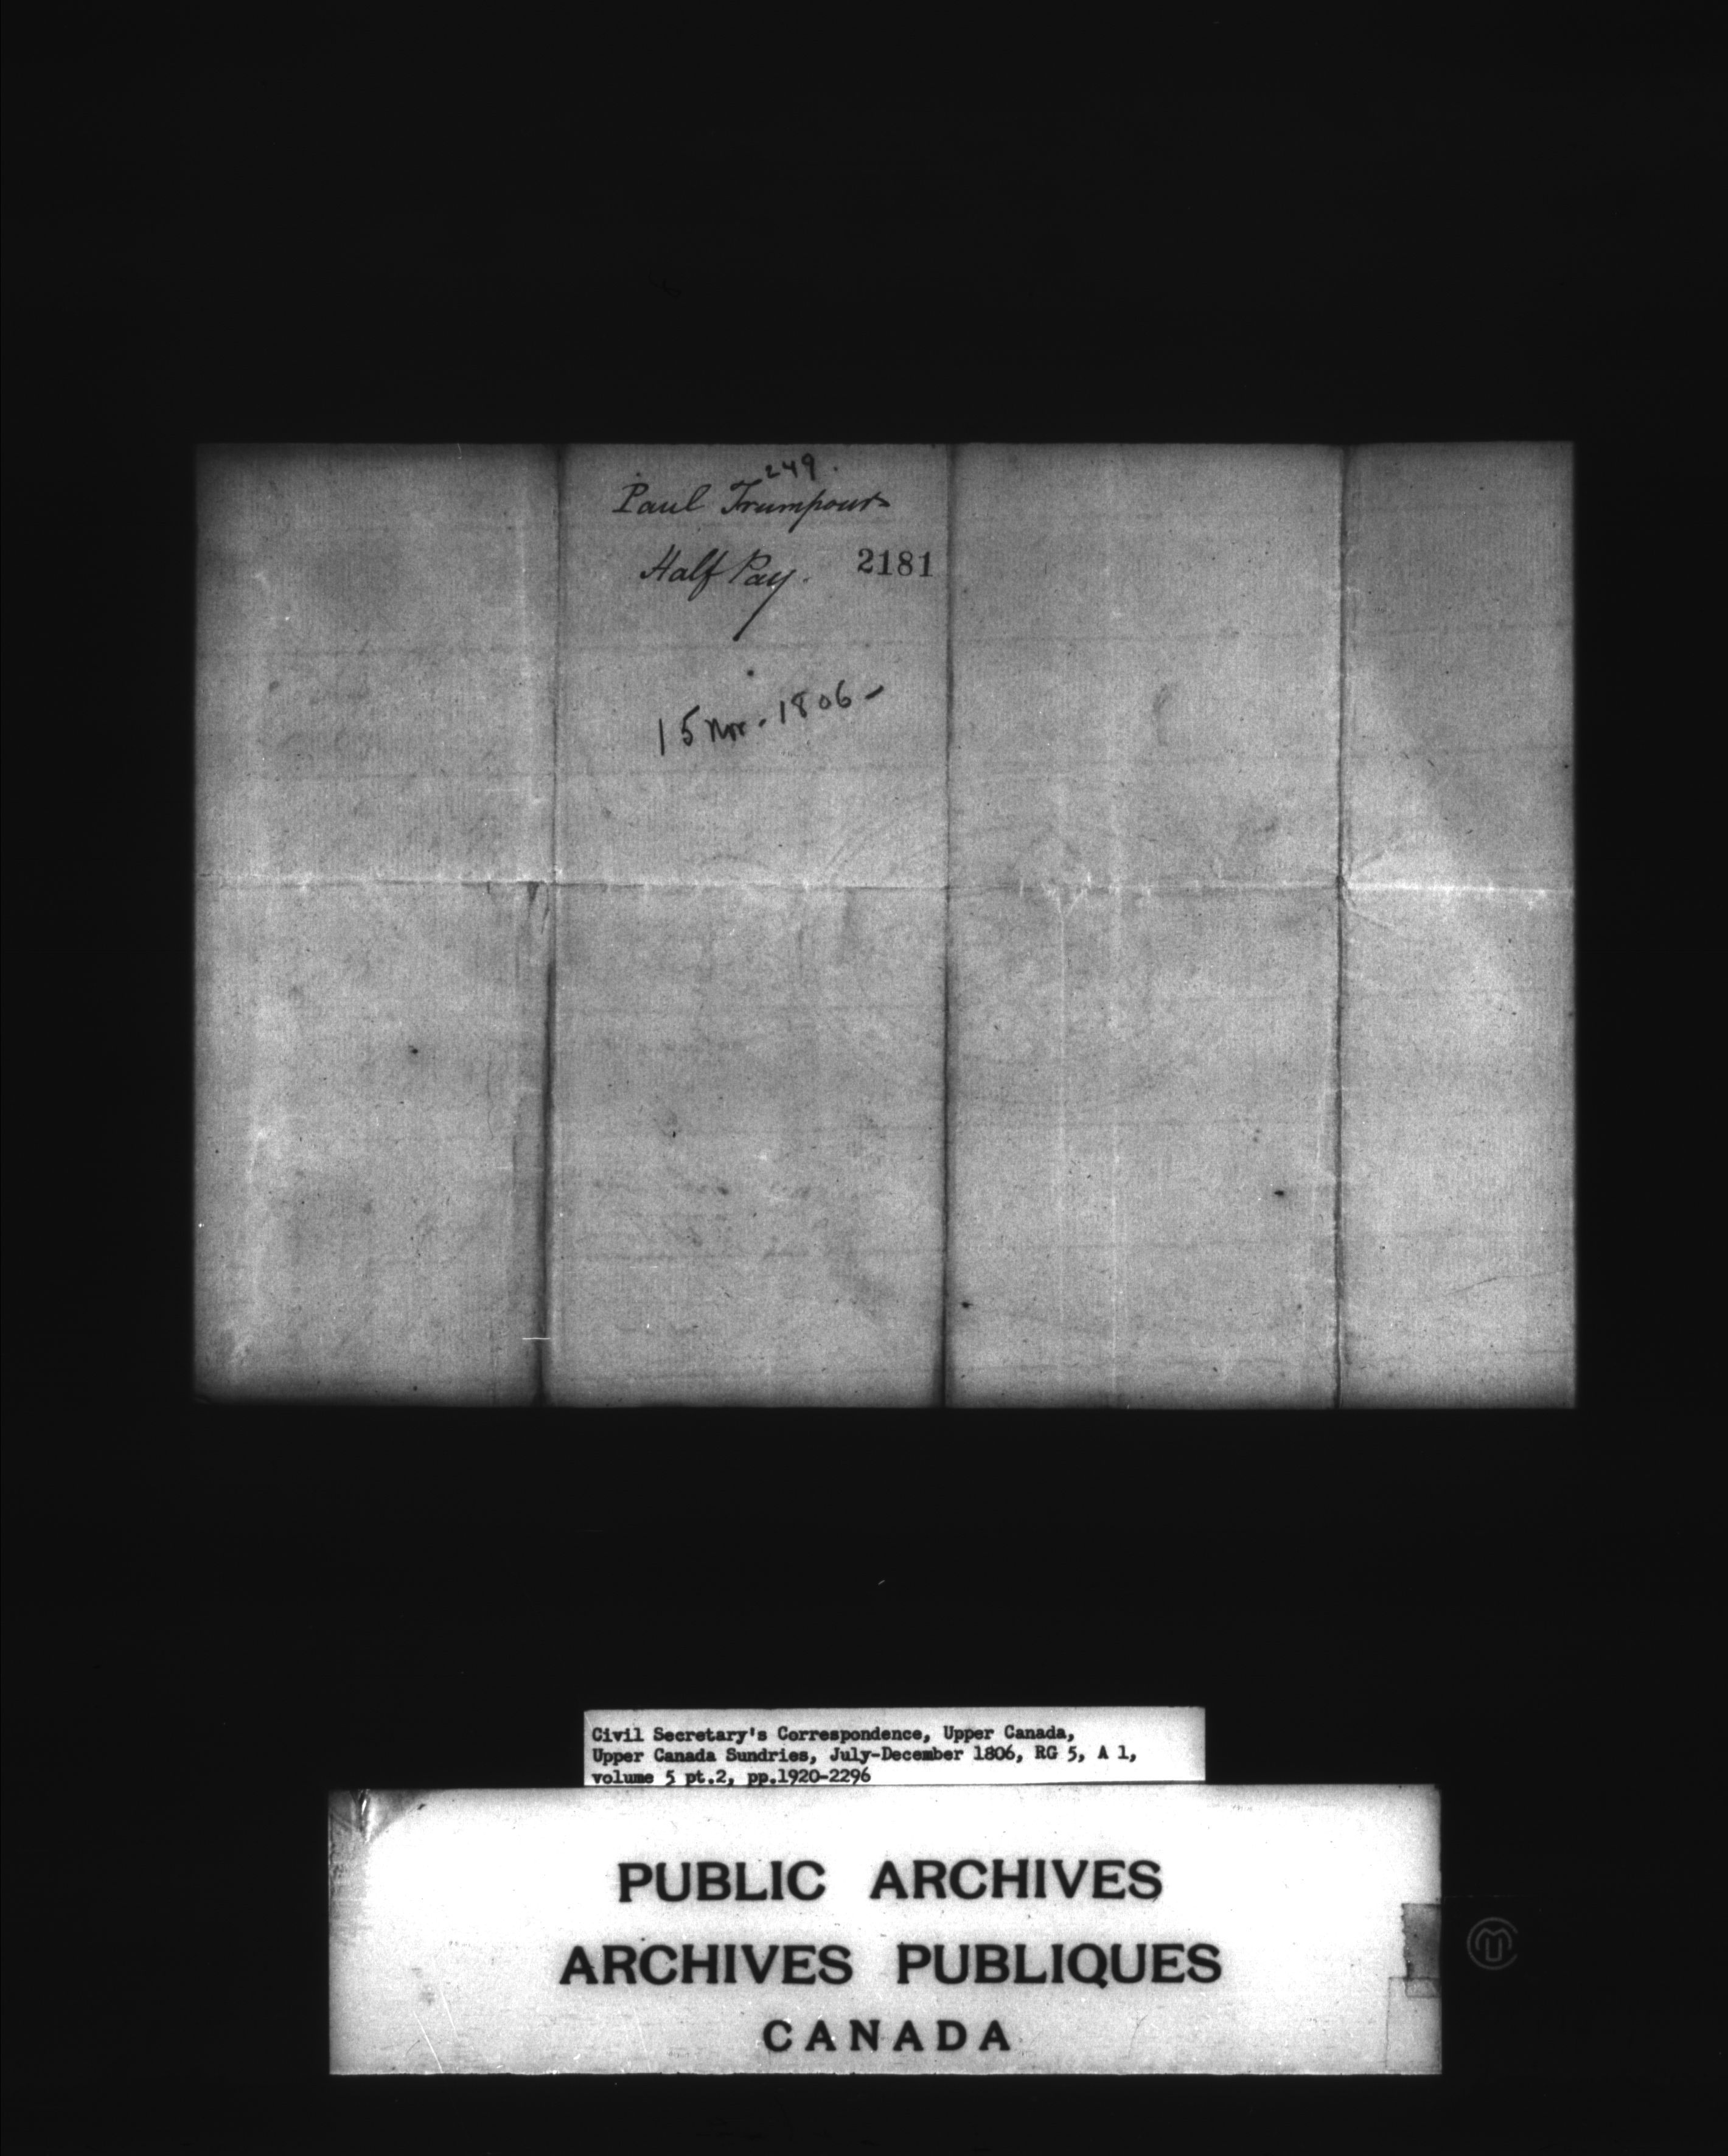 249.
Paul Trumpours
Half Pay.
2181
15 Nov. 1806 -
Civil Secretary's Correspondence, Upper Canada,
Upper Canada Sundries, July-December 1806, RG 5, A 1,
volume 5 pt.2, pp.1920-2296
PUBLIC ARCHIVES
ARCHIVES PUBLIQUES
CANADA